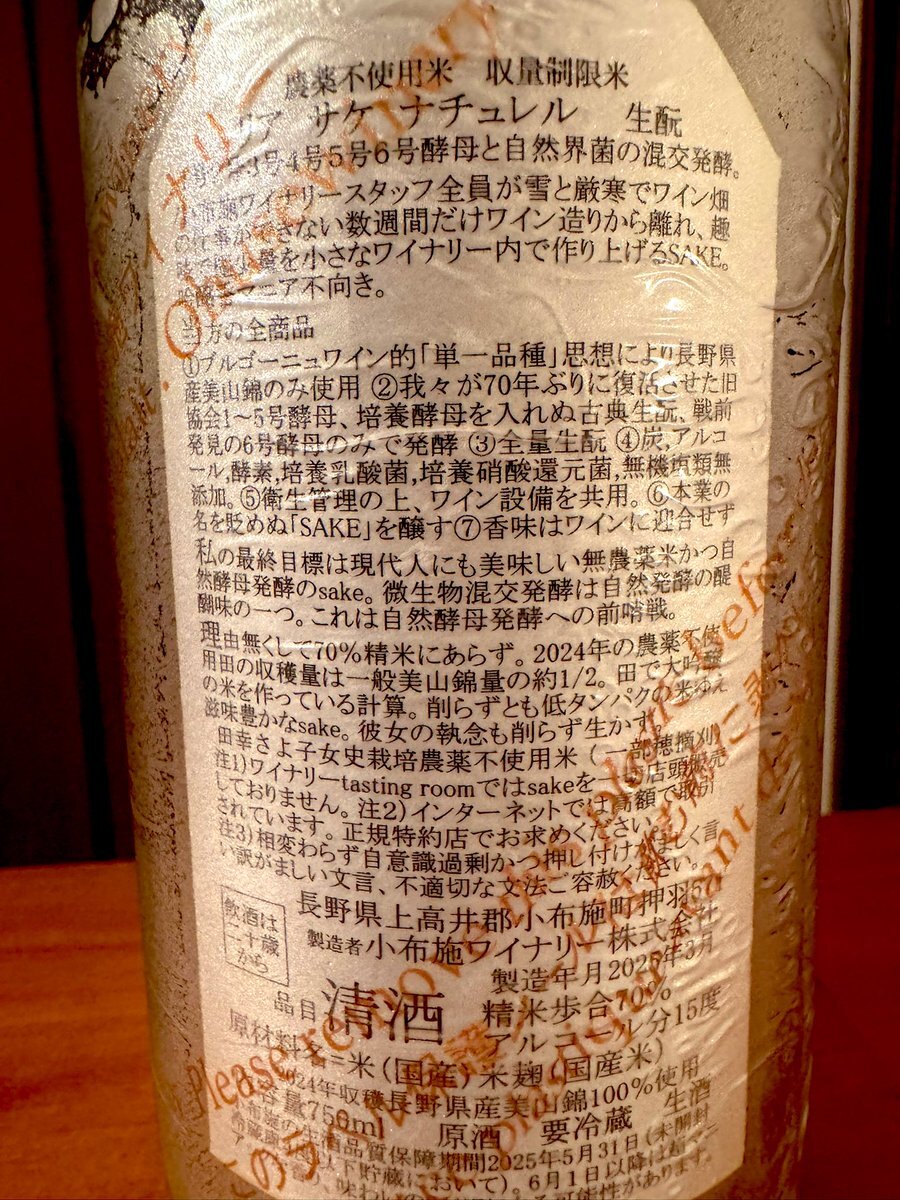 農薬不使用米 収量制限米
サケ ナチュレル 生酛
3号4号5号6号酵母と自然界菌の混交発酵。
ワイナリースタッフ全員が雪と厳寒でワイン畑
できない数週間だけワイン造りから離れ、趣
を小さなワイナリー内で作り上げるSAKE。
マニア不向き。
当方の全商品
①ブルゴーニュワイン的「単一品種」思想により長野県
産美山錦のみ使用 ②我々が70年ぶりに復活させた旧
協会1〜5号酵母、培養酵母を入れぬ古典生酛、戦前
発見の6号酵母のみで発酵 ③全量生酛 ④炭,アルコ
ール,酵素,培養乳酸菌,培養硝酸還元菌,無機塩類無
添加。⑤衛生管理の上、ワイン設備を共用。⑥本業の
名を貶めぬ「SAKE」を醸す⑦香味はワインに迎合せず
私の最終目標は現代人にも美味しい無農薬米かつ自
然酵母発酵のsake。微生物混交発酵は自然発酵の醍
醐味の一つ。これは自然酵母発酵への前哨戦。
理由無くして70%精米にあらず。2024年の農薬不使
用田の収穫量は一般美山錦量の約1/2。田で大吟醸
の米を作っている計算。削らずとも低タンパクの米ゆえ
滋味豊かなsake。彼女の執念も削らず生かす。
田幸さよ子女史栽培農薬不使用米(一部穂摘刈)
注1)ワイナリーtasting roomではsakeを一切店頭販売
しておりません。注2)インターネットでは高額で取引
されています。正規特約店でお求めください。
注3)相変わらず自意識過剰かつ押し付けがましく言
い訳がましい文言、不適切な文法ご容赦ください。
長野県上高井郡小布施町押羽57
飲酒は
二十歳
から
製造者 小布施ワイナリー株式会社
製造年月2025年3月
品目 清酒 精米歩合70%
アルコール分15度
原材料名=米(国産)米麹(国産米)
2024年収穫長野県産美山錦100%使用
容量750ml 原酒 要冷蔵 生酒
品質保障期間2025年5月31日(未開封
以下貯蔵において)。6月1日以降は
Please remove